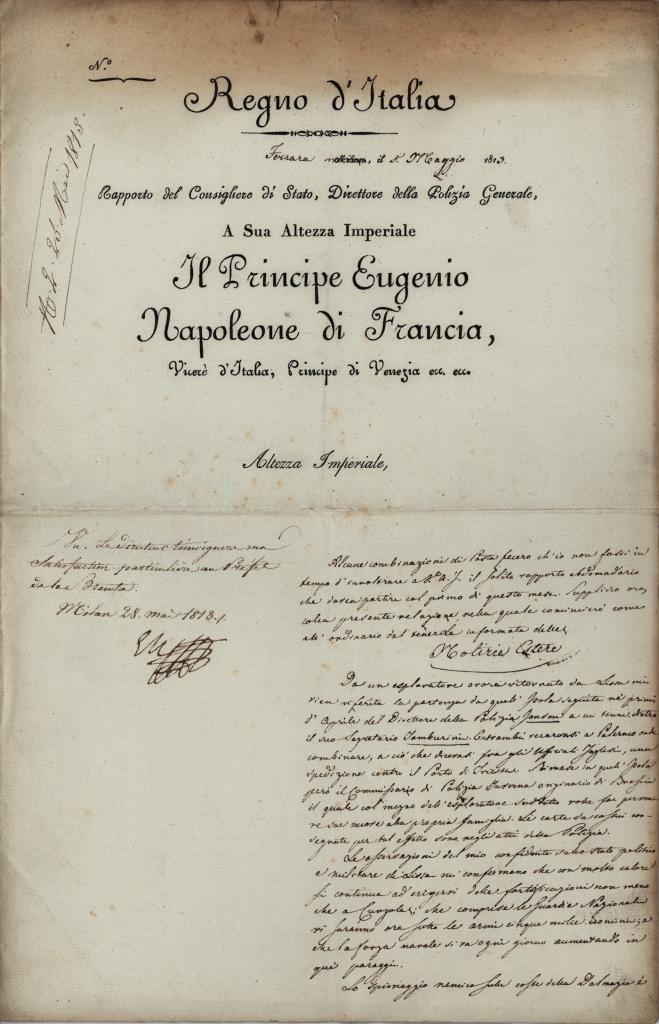 N.º
Regno d'Italia
Ferrara, il 5 Maggio 1813.
N.2. 28 Mai 1813.
Rapporto del Consigliere di Stato, Direttore della Polizia Generale,
A Sua Altezza Imperiale
Il Principe Eugenio
Napoleone di Francia,
Vicerè d'Italia, Principe di Venezia ec. ec.
Altezza Imperiale,
Vu. Le Directeur témoignera ma
Satisfaction particulière au Préfet
de la Brenta.
Milan 28. mai 1813.
Alcune combinazioni di Posta fecero ch'io non fossi in
tempo d'innoltrare a V. A. I. il solito rapporto ebdomadario
che dovea partire col primo di questo mese. Supplisco ora
colla presente relazione, nella quale comincierò come
all'ordinario dal tenerla informata delle
Notizie Estere
Da un esploratore ora ritornato da Lissa mi
vien riferita la partenza da quell'Isola seguita ne' primi
d'Aprile del Direttore della Polizia Jonson a cui tenne dietro
il suo Segretario Tamburini. Entrambi recaronsi a Palermo onde
combinare, a ciò che dicevasi fra gli Uffiziali Inglesi, una
spedizione contro il Porto di Trieste. Rimase in quell'Isola
però il Commissario di Polizia Taverna originario di Brescia
il quale col mezzo dell'esploratore suddetto volle far perveni
re sue nuove alla propria famiglia. Le carte da costui con-
segnate per tal effetto sono negli atti della Polizia.
Le osservazioni del mio confidente sullo stato politico
e militare di Lissa mi confermano che con molto calore
si continua ad erigervi delle fortificazioni non meno
che a Curzola; che comprese le Guardie Nazionali
vi saranno ora sotto le armi cinque mille uomini; e
che la forza navale si va ogni giorno aumentando in
que' paraggi.
Lo Spionaggio nemico sulle coste della Dalmazia è